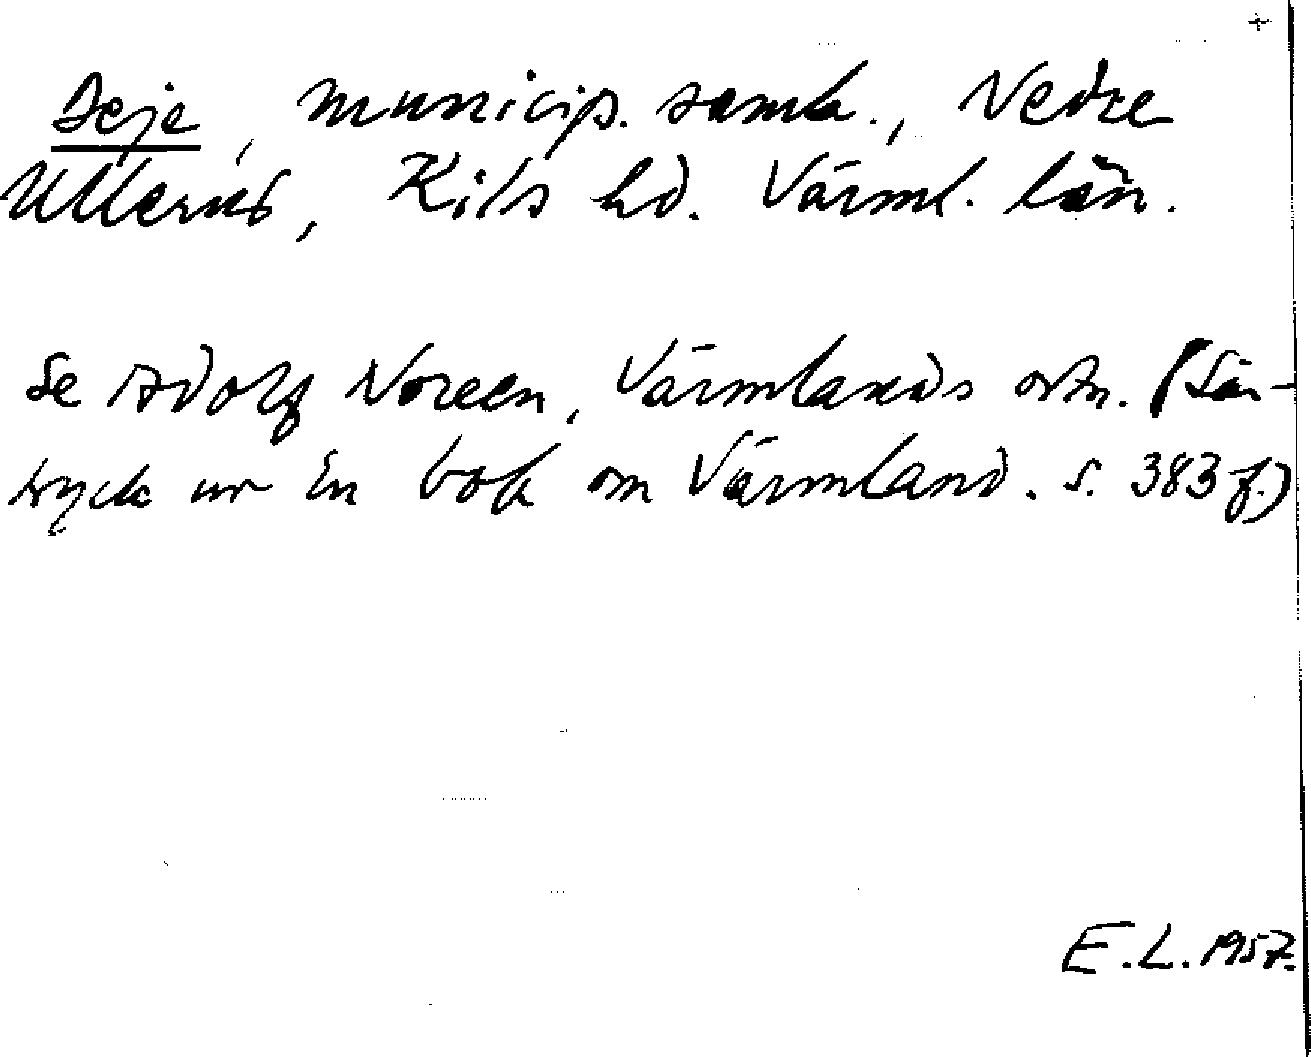 Deje, municip. samh., Nedre
Ullerud, Kils hd. Värml. län.
Se Adolf Noreen, Värmlands ortn. (Sär-
tryck ur En bok om Värmland. s. 383 f.)
E.L. 1957.